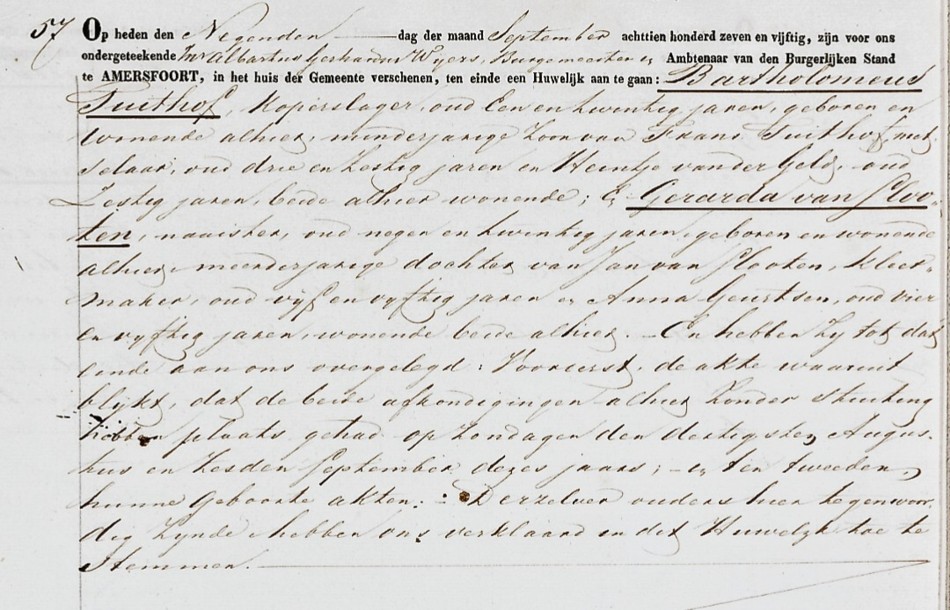 57 Op heden den Negenden dag der maand September achttien honderd zeven en vijftig, zijn voor ons
ondergeteekende Mr Albartus Gerhardus Wijers, Burgemeester en Ambtenaar van den Burgerlijken Stand
te AMERSFOORT, in het huis der Gemeente verschenen, ten einde een Huwelijk aan te gaan: Bartholomeus
Tuithof, Koperslager, oud Een en twintig jaren, geboren en
wonende alhier, minderjarige zoon van Frans Tuithof, met-
selaar, oud drie en zestig jaren en Heintje van der Geld, oud
Zestig jaren, beide alhier wonende; & Gerarda van Sloo-
ten, naaister, oud negen en twintig jaren, geboren en wonende
alhier, meerderjarige dochter van Jan van Slooten, kleer-
maker, oud vijf en vijftig jaren en Anna Geurtsen, oud vier
en vijftig jaren, wonende beide alhier. — En hebben zij tot dat
einde aan ons overgelegd: Vooreerst, de akte waaruit
blijkt, dat de beide afkondigingen alhier zonder stuiting
hebben plaats gehad op zondagen den dertigsten Augus-
tus en zesden September dezes jaars; — en ten tweeden,
hunne geboorte akten. : Derzelver ouders hier tegenwoor-
dig zynde hebben ons verklaard in dit Huwelyk toe te
Stemmen.